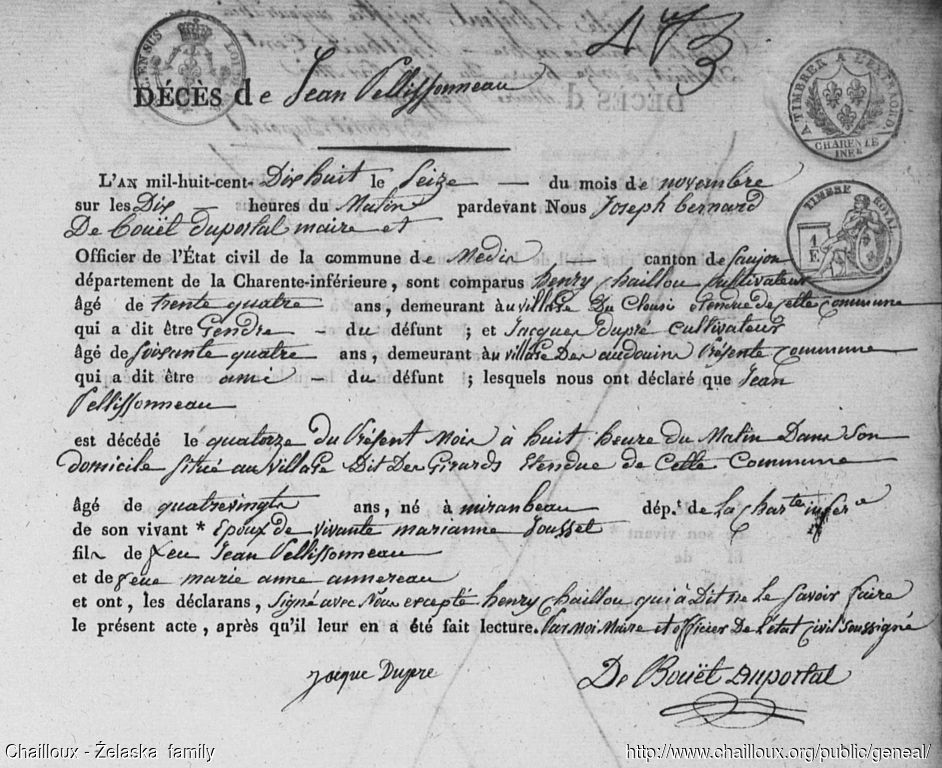 473
CENSUS LOI
DÉCÈS de Jean Pellissonneau
TIMBRER A L'EXTRAORD
CHARENTE
INFRE
L'AN mil-huit-cent- Dix huit le Seize — du mois de novembre
sur les Dix — heures du Matin pardevant Nous Joseph bernard
De Bouët Duportal maire et
TIMBRE ROYAL
1
F
Officier de l'État civil de la commune de Medis — canton de Saujon
département de la Charente-inférieure, sont comparus henry Chaillou Cultivateur
âgé de trente quatre ans, demeurant au village Du Clousi Etendue de Cette Commune
qui a dit être Gendre - du défunt ; et Jacques Dupré Cultivateur
âgé de Soisante quatre ans, demeurant au village Des audouins Présente Commune
qui a dit être ami - du défunt ; lesquels nous ont déclaré que Jean
Pellissonneau
est décédé le quatorze du Présent Mois à huit heure du Matin Dans Son
Domicile Situé au Village Dit Des Girards Etendue de Cette Commune
âgé de quatrevingts ans, né à mirambeau dép.t de La Charte infere
de son vivant * Epoux de vivante marianne Jousset
fils de feu Jean Pellissonneau
et de feue marie anne annereau
et ont, les déclarans, Signé avec Nous excepté henry Chaillou qui à Dit ne Le Savoir faire
le présent acte, après qu'il leur en a été fait lecture. Par Moi Maire et officier De L'état Civil Soussigné
Jacque Dupre
De Bouët Duportal
Chailloux - Żelaska family
http://www.chailloux.org/public/geneal/